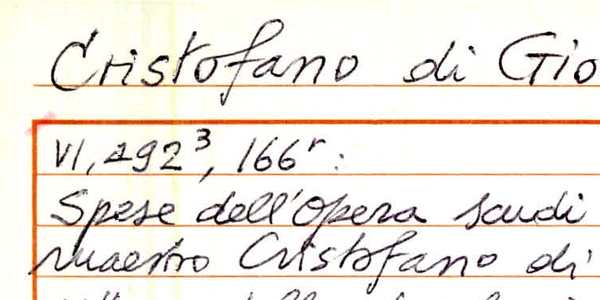 Cristofano di Gio
VI, 292³, 166ʳ:
Spese dell'Opera scudi
maestro Cristofano di